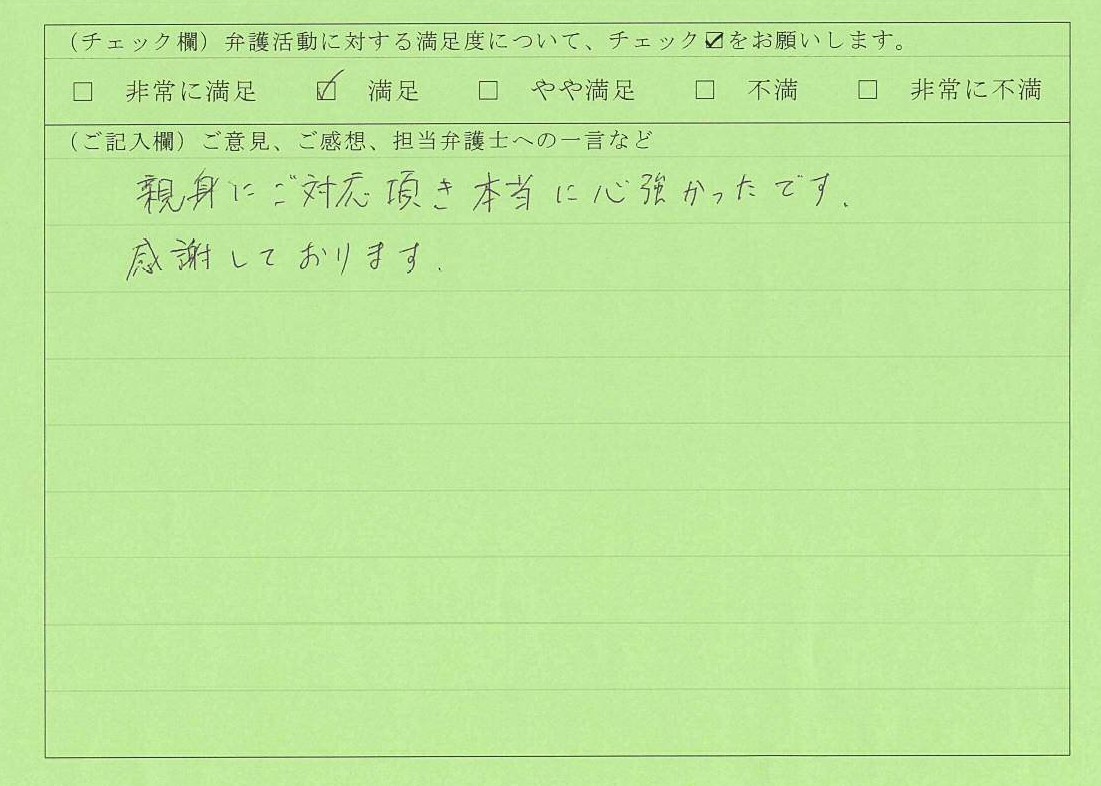 (チェック欄）弁護活動に対する満足度について、チェック☑をお願いします。
□ 非常に満足 ☑ 満足 □ やや満足 □ 不満 □ 非常に不満
(ご記入欄）ご意見、ご感想、担当弁護士への一言など
親身にご対応頂き本当に心強かったです.
感謝しております.